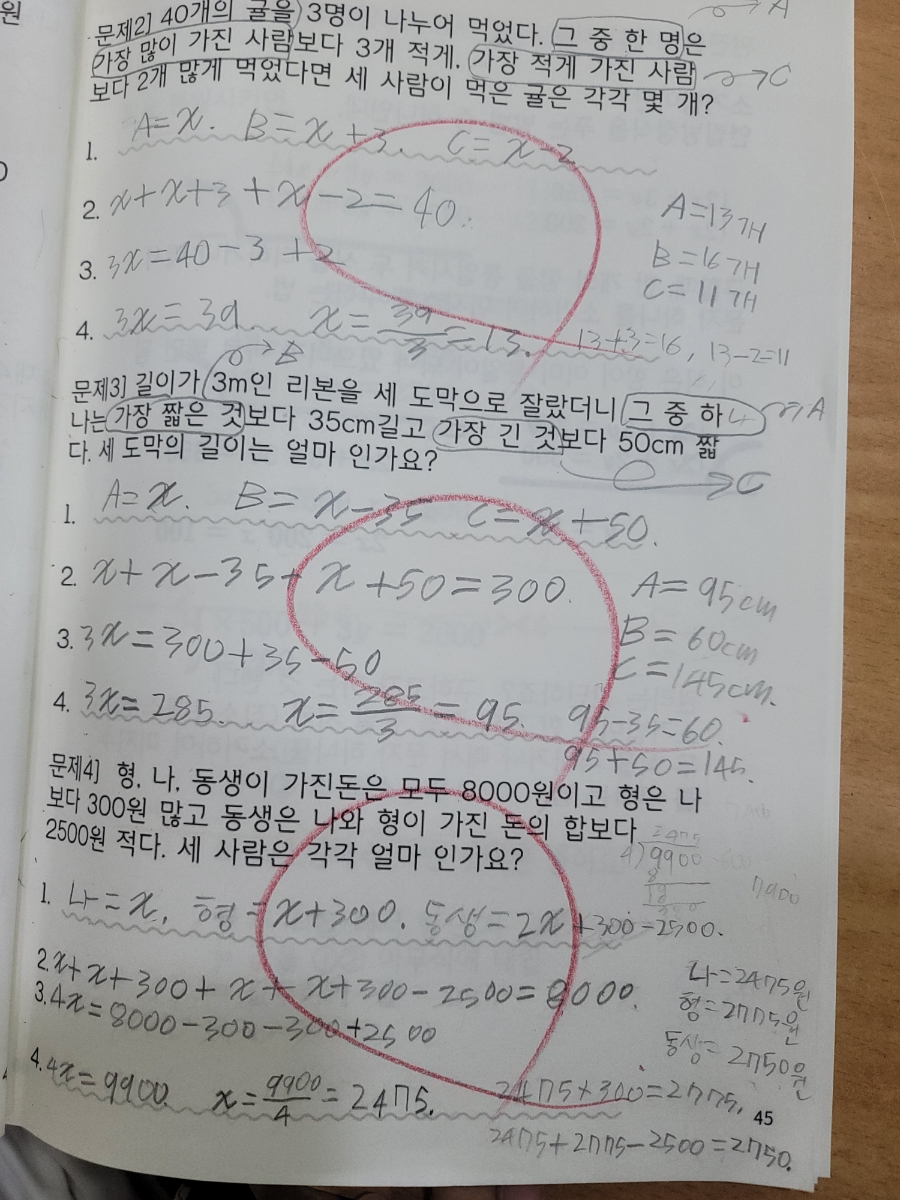 원
문제2] 40개의 귤을 3명이 나누어 먹었다. 그 중 한 명은
가장 많이 가진 사람보다 3개 적게, 가장 적게 가진 사람
보다 2개 많게 먹었다면 세 사람이 먹은 귤은 각각 몇 개?
A
C
1. A=x. B=x+3. C=x-2
2. x+x+3+x-2=40.
3. 3x=40-3+2
4. 3x=39 x=39/3=13. 13+3=16, 13-2=11
A=13개
B=16개
C=11개
B
문제3] 길이가 3m인 리본을 세 도막으로 잘랐더니 그 중 하
나는 가장 짧은 것보다 35cm길고 가장 긴 것보다 50cm 짧
다. 세 도막의 길이는 얼마 인가요?
A
C
1. A=x. B=x-35 C=x+50.
2. x+x-35+x+50=300.
3. 3x=300+35-50
4. 3x=285. x=285/3=95. 95-35=60.
95+50=145.
A=95cm
B=60cm
C=145cm.
문제4] 형, 나, 동생이 가진돈은 모두 8000원이고 형은 나
보다 300원 많고 동생은 나와 형이 가진 돈의 합보다
2500원 적다. 세 사람은 각각 얼마 인가요?
2475
4)9900
8
19
7900
1. 나=x, 형=x+300. 동생=2x+300-2500.
2. x+x+300+x+x+300-2500=8000.
3. 4x=8000-300-300+2500
4. 4x=9900. x=9900/4=2475.
나=2475원
형=2775원
동생=2750원
2475+300=2775,
2475+2775-2500=2750.
45